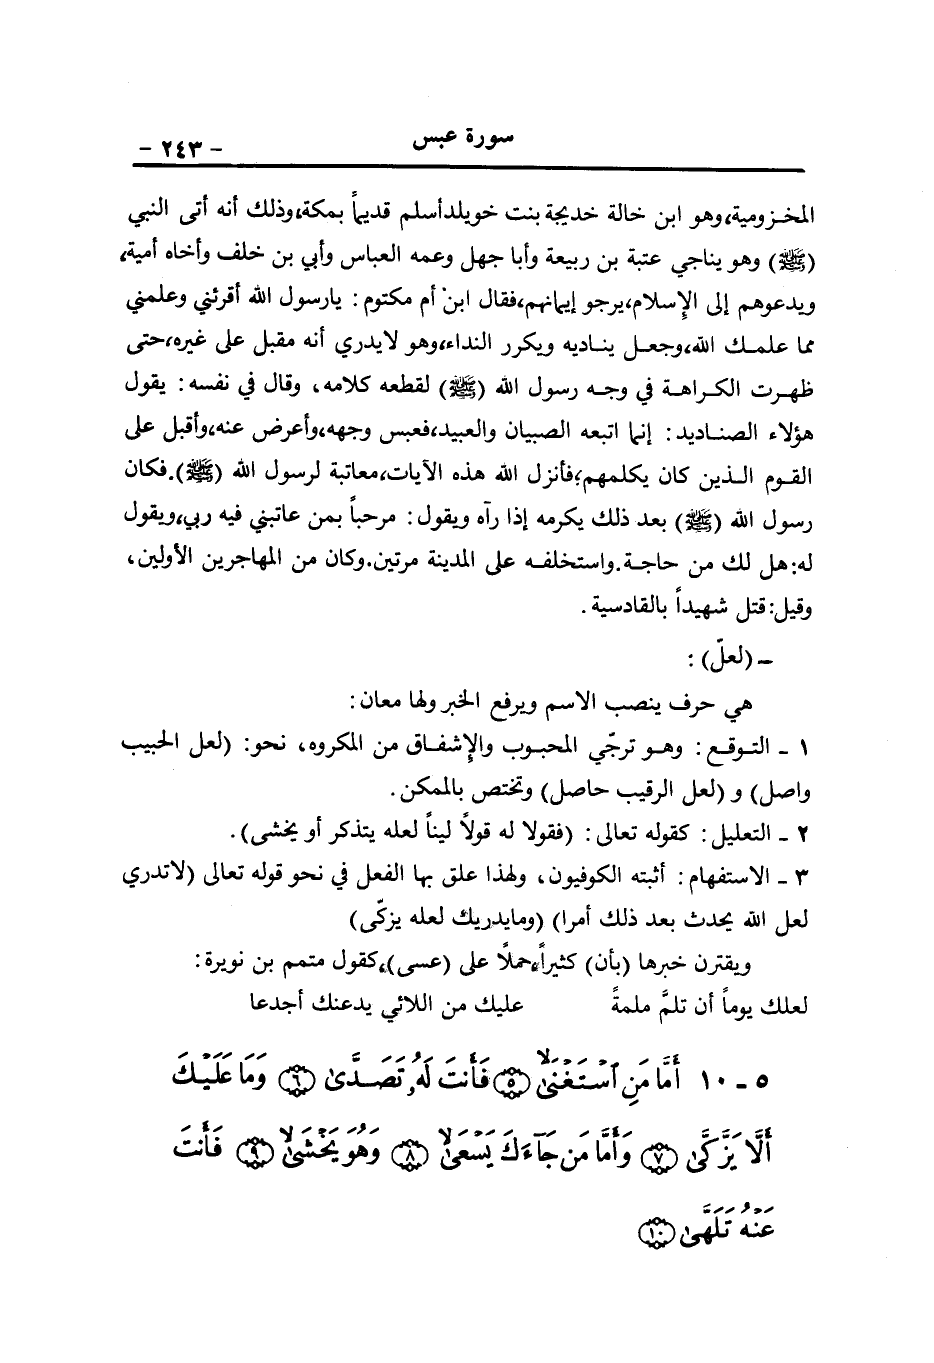 سورة عبس
- ٢٤٣ -
المخزومية، وهو ابن خالة خديجة بنت خويلد أسلم قديماً بمكة، وذلك أنه أتى النبي
(ﷺ) وهو يناجي عتبة بن ربيعة وأبا جهل وعمه العباس وأبي بن خلف وأخاه أمية،
ويدعوهم إلى الإسلام، يرجو إيمانهم، فقال ابن أم مكتوم : يارسول الله أقرئني وعلمني
مما علمك الله، وجعل يناديه ويكرر النداء، وهو لايدري أنه مقبل على غيره، حتى
ظهرت الكراهة في وجه رسول الله (ﷺ) لقطعه كلامه، وقال في نفسه : يقول
هؤلاء الصناديد : إنما اتبعه الصبيان والعبيد، فعبس وجهه، وأعرض عنه، وأقبل على
القوم الذين كان يكلمهم؛ فأنزل الله هذه الآيات، معاتبة لرسول الله (ﷺ). فكان
رسول الله (ﷺ) بعد ذلك يكرمه إذا رآه ويقول : مرحباً بمن عاتبني فيه ربي، ويقول
له: هل لك من حاجة. واستخلفه على المدينة مرتين. وكان من المهاجرين الأولين،
وقيل: قتل شهيداً بالقادسية .
– (لعلّ) :
هي حرف ينصب الاسم ويرفع الخبر ولها معان :
١ - التوقع : وهو ترجّي المحبوب والإشفاق من المكروه، نحو: (لعل الحبيب
واصل) و (لعل الرقيب حاصل) وتختص بالممكن .
٢ - التعليل : كقوله تعالى : (فقولا له قولاً ليناً لعله يتذكر أو يخشى) .
٣ - الاستفهام : أثبته الكوفيون، ولهذا علق بها الفعل في نحو قوله تعالى (لاتدري
لعل الله يحدث بعد ذلك أمرا) (ومايدريك لعله يزكّى)
ويقترن خبرها (بأن) كثيراً، حملاً على (عسى)، كقول متمم بن نويرة :
لعلك يوماً أن تلمَّ ملمةً عليك من اللائي يدعنك أجدعا
٥ - ١٠ أَمَّا مَنِ ٱسْتَغْنَىٰ ۝٥ فَأَنتَ لَهُۥ تَصَدَّىٰ ۝٦ وَمَا عَلَيْكَ
أَلَّا يَزَّكَّىٰ ۝٧ وَأَمَّا مَن جَآءَكَ يَسْعَىٰ ۝٨ وَهُوَ يَخْشَىٰ ۝٩ فَأَنتَ
عَنْهُ تَلَهَّىٰ ۝١٠